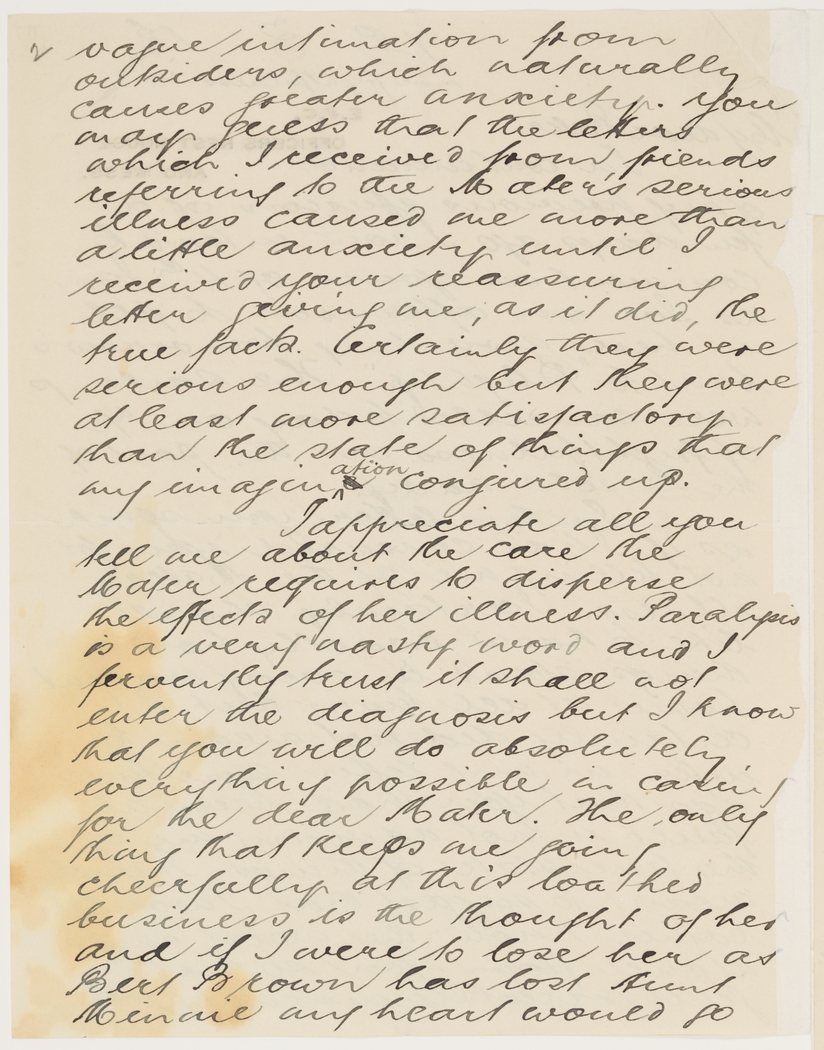 2 vague intimation from
outsiders, which naturally
causes greater anxiety. You
may guess that the letters
which I received from friends
referring to the Mater's serious
illness caused me more than
a little anxiety until I
received your reassuring
letter giving me, as it did, the
true facts. Certainly they were
serious enough but they were
at least more satisfactory
than the state of things that
my imagination conjured up.
I appreciate all you
tell me about the care the
Mater requires to disperse
the effects of her illness. Paralysis
is a very nasty word and I
fervently trust it shall not
enter the diagnosis but I know
that you will do absolutely
everything possible in caring
for the dear Mater. The only
thing that keeps me going
cheerfully at this loathed
business is the thought of her
and if I were to lose her as
Bert Brown has lost Aunt
Minnie my heart would go